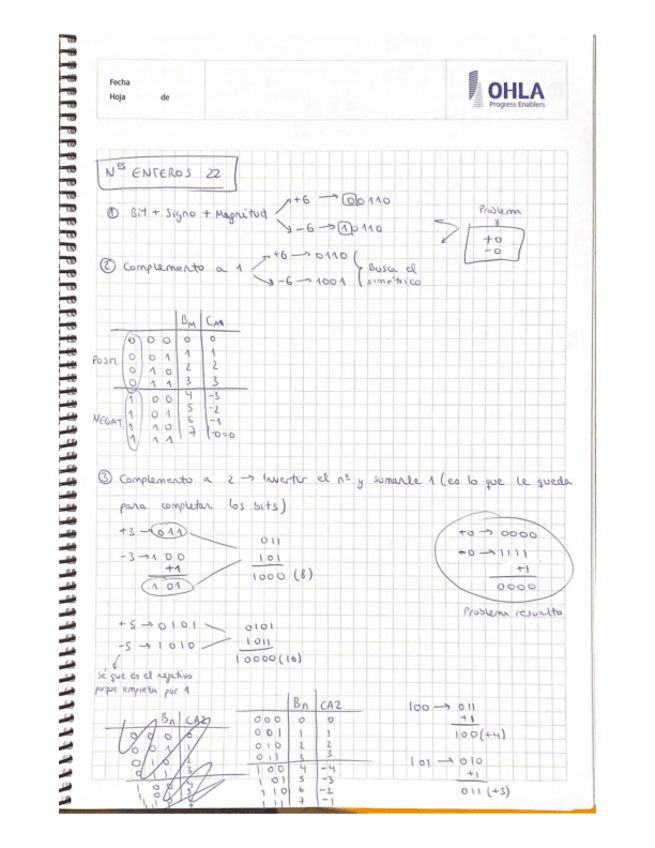 Fecha
Hoja de
OHLA
Progress Enablers
Nos ENTEROS 22
① Bit + Signo + Magnitud
+6 → 00110
-6 → 10110
Problema
+0
-0
② Complemento a 1
+6 → 0110
-6 → 1001
Busca el
simétrico
BM CA1
0 0 0 0 0
POSIT. 0 0 1 1 1
0 1 0 2 2
0 1 1 3 3
1 0 0 4 -3
NEGAT. 1 0 1 5 -2
1 1 0 6 -1
1 1 1 7 -0=0
③ Complemento a 2 → Invertir el nº y sumarle 1 (es lo que le queda
para completar los bits)
+3 → 011
-3 → 1 0 0
+1
1 01
011
101
1000 (8)
+0 → 0000
-0 → 1111
+1
0000
Problema resuelto
+5 → 0101
-5 → 1010
0101
1011
10000 (16)
Sé que es el negativo
porque empieza por 1
Bn CA2
0 0 0 0
0 0 1 1
0 1 0 2
0 1 1 3
Bn CA2
000 0 0
001 1 1
010 2 2
011 3 3
100 4 -4
101 5 -3
110 6 -2
111 7 -1
100 → 011
+1
100 (+4)
101 → 010
+1
011 (+3)